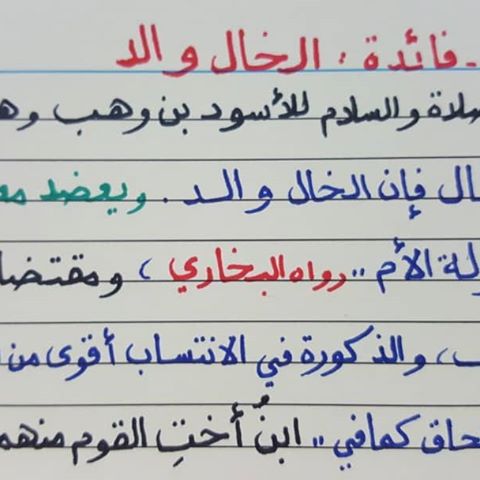 - فائدة : الخال والد
صلاة والسلام للأسود بن وهب وه
ال فإن الخال والـد . ويعضد مع
لة الأم .. رواه البخاري ) ومقتضا
ب ، والذكورة في الانتساب أقوى من ا
حاق كما في .. ابنُ أختِ القوم منهم